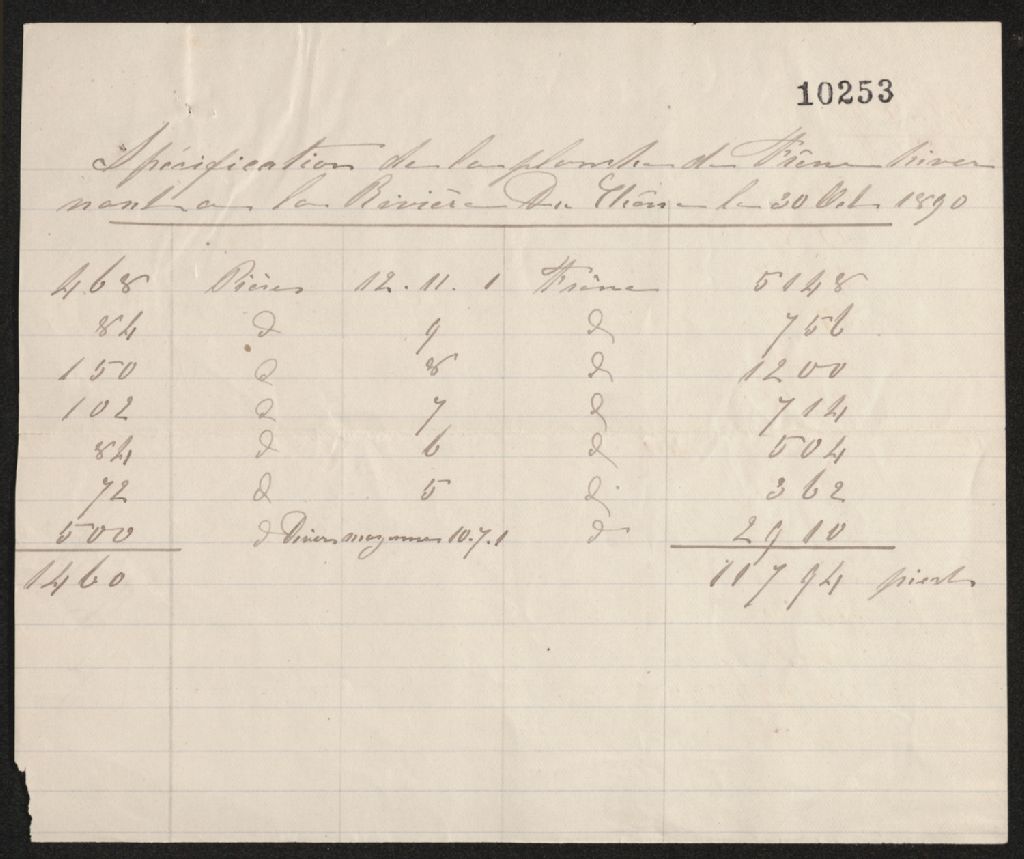 10253
Spécification de la planche de Frêne hiver
nant a la Rivière Du Chêne le 30 Oct 1890
468 Pièces 12.11.1 Frêne 5148
84 d 9 d 756
150 d 8 d 1200
102 d 7 d 714
84 d 6 d 504
72 d 5 d 362
500 d Divers moyennes 10.7.1 d 2910
1460 11794 pieds